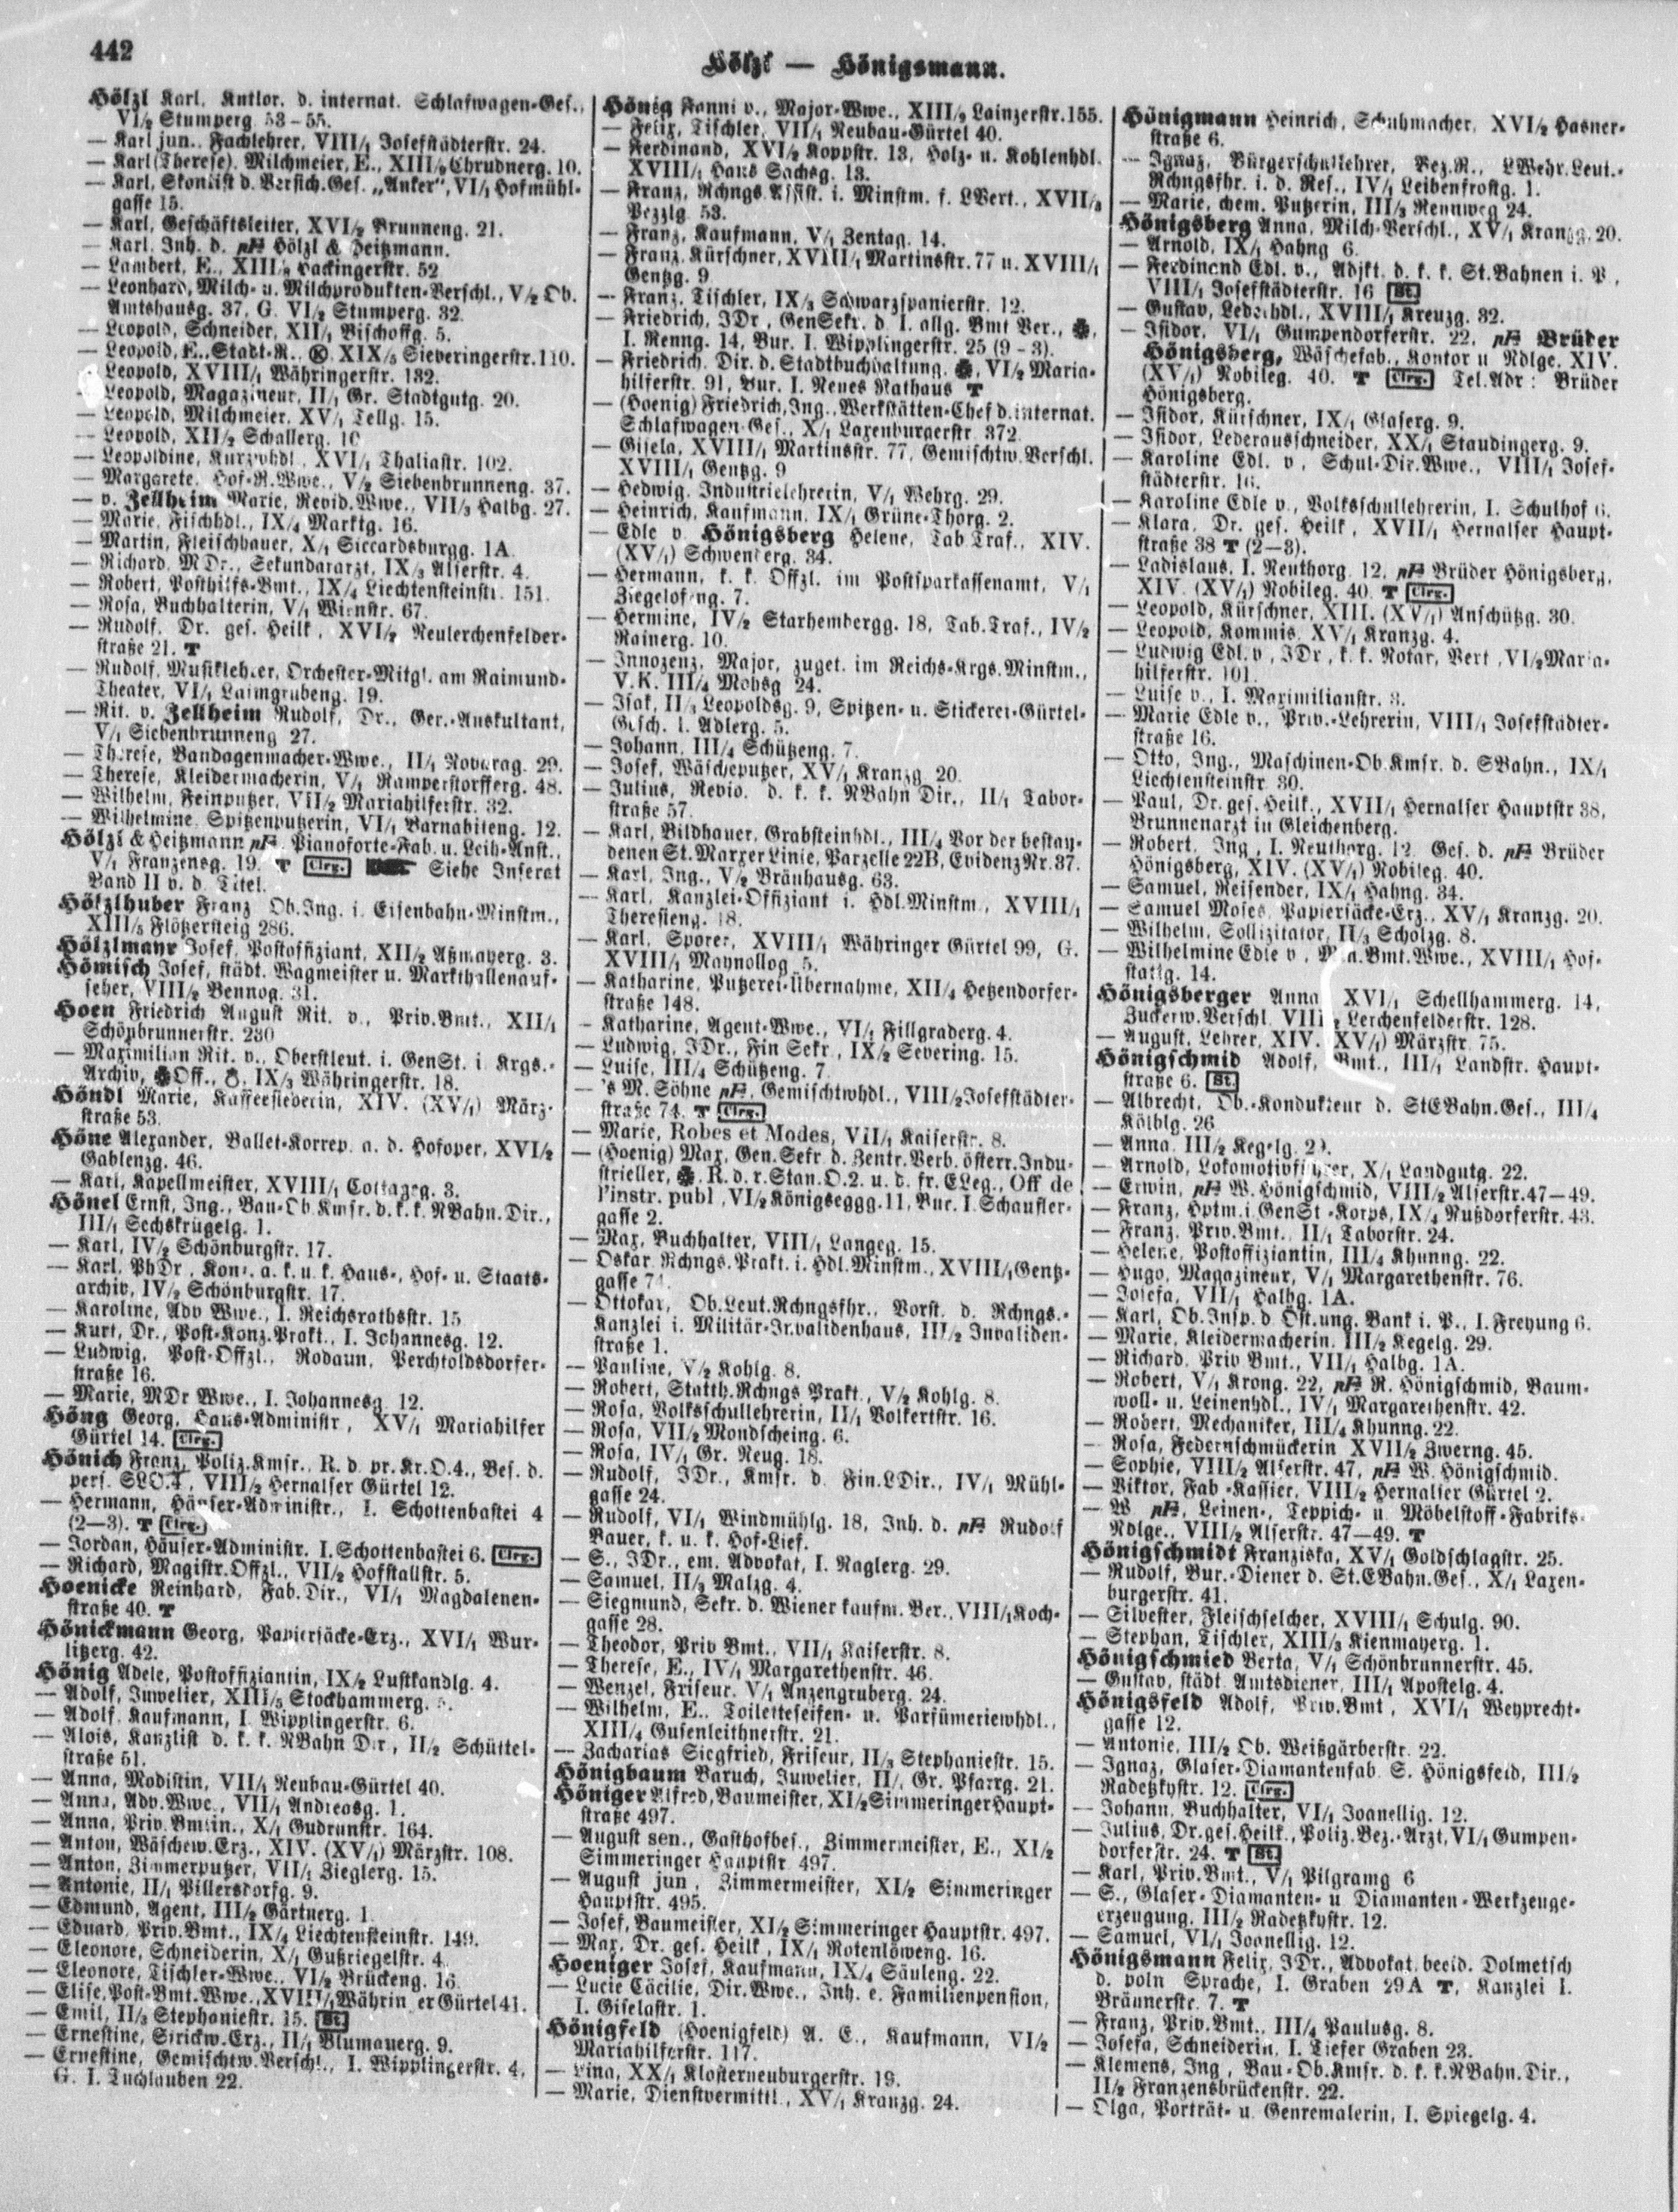 442
Hölzl — Hönigsmann.
Hölzl Karl, Kntlor. d. internat. Schlafwagen-Ges.,
VI/2 Stumperg. 53-55.
— Karl jun., Fachlehrer, VIII/1 Josefstädterstr. 24.
— Karl (Therese), Milchmeier, E., XIII/2 Chrudnerg. 10.
— Karl, Skontist d. Versich.Ges. „Anker", VI/1 Hofmühl-
gasse 15.
— Karl, Geschäftsleiter, XVI/2 Brunneng. 21.
— Karl, Inh. d. pF Hölzl & Heitzmann.
— Lambert, E., XIII/2 Hackingerstr. 52
— Leonhard, Milch- u. Milchprodukten-Verschl., V/2 Ob.
Amtshausg. 37, G. VI/2 Stumperg. 32.
— Leopold, Schneider, XII/1 Bischoffg. 5.
— Leopold, E., Stadt-R., XIX/5 Sieveringerstr. 110.
Leopold, XVIII/1 Währingerstr. 132.
Leopold, Magazineur, II/1 Gr. Stadtgutg. 20.
— Leopold, Milchmeier, XV/1 Tellg. 15.
— Leopold, XII/2 Schallerg.
— Leopoldine, Kurzwhdl., XVI/1 Thaliastr. 102.
— Margarete, Hof-R.Wwe., V/2 Siebenbrunneng. 37.
— v. Zellheim Marie, Revid.Wwe., VII/3 Halbg. 27.
— Marie, Fischhdl., IX/4 Marktg. 16.
— Martin, Fleischhauer, X/1 Siccardsburgg. 1A.
— Richard, MDr., Sekundararzt, IX/3 Alserstr. 4.
— Robert, Posthilfs-Bmt., IX/4 Liechtensteinstr. 151.
— Rosa, Buchhalterin, V/1 Wienstr. 67.
— Rudolf, Dr. ges. Heilk., XVI/2 Neulerchenfelder-
straße 21. T
— Rudolf, Musiklehrer, Orchester-Mitgl. am Raimund-
Theater, VI/1 Laimgrubeng. 19.
— Rit. v. Zellheim Rudolf, Dr., Ger.-Auskultant,
V/1 Siebenbrunneng 27.
— Therese, Bandagenmacher-Wwe., II/1 Novarag. 29.
— Therese, Kleidermacherin, V/1 Ramperstorfferg. 48.
— Wilhelm, Feinputzer, VII/2 Mariahilferstr. 32.
— Wilhelmine, Spitzenputzerin, VI/1 Barnabiteng. 12.
Hölzl & Heitzmann pF, Pianoforte-Fab. u. Leih-Anst.,
V/1 Franzensg. 19. T Clrg. Siehe Inserat
Band II v. d. Titel.
Hölzlhuber Franz Ob.Ing. i. Eisenbahn-Minstm.,
XIII/5 Flötzersteig 286.
Hölzlmayr Josef, Postoffiziant, XII/2 Aßmayerg. 3.
Hömisch Josef, städt. Wagmeister u. Markthallenauf-
seher, VIII/2 Bennog. 31.
Hoen Friedrich August Rit. v., Priv.Bmt., XII/1
Schönbrunnerstr. 230
— Maximilian Rit. v., Oberstleut. i. GenSt. i. Krgs.-
Archiv, Off., IX/3 Währingerstr. 18.
Höndl Marie, Kaffeesiederin, XIV. (XV/1) März-
straße 53.
Höne Alexander, Ballet-Korrep. a. d. Hofoper, XVI/2
Gablenzg. 46.
— Karl, Kapellmeister, XVIII/1 Cottageg. 3.
Hönel Ernst, Ing., Bau-Ob.Kmsr. d. k. k. NBahn.Dir.,
III/1 Sechskrügelg. 1.
— Karl, IV/2 Schönburgstr. 17.
— Karl, PhDr., Konz. a. k. u. k. Haus-, Hof- u. Staats-
archiv, IV/2 Schönburgstr. 17.
— Karoline, Adv.Wwe., I. Reichsrathsstr. 15
— Kurt, Dr., Post-Konz.Prakt., I. Johannesg. 12.
— Ludwig, Post-Offzl., Rodaun, Perchtoldsdorfer-
straße 16.
— Marie, MDr Wwe., I. Johannesg. 12.
Höng Georg, Haus-Administr., XV/1 Mariahilfer
Gürtel 14. Clrg.
Hönich Franz, Poliz.Kmsr., R. d. pr.Kr.O.4., Bes. d.
pers. SLO.4, VIII/2 Hernalser Gürtel 12.
— Hermann, Häuser-Administr., I. Schottenbastei 4
(2—3). T Clrg.
— Jordan, Häuser-Administr. I. Schottenbastei 6. Clrg.
— Richard, Magistr.Offzl., VII/2 Hofstallstr. 5.
Hoenicke Reinhard, Fab.Dir., VI/1 Magdalenen-
straße 40. T
Hönickmann Georg, Papiersäcke-Erz., XVI/1 Wur-
litzerg. 42.
Hönig Adele, Postoffiziantin, IX/2 Lustkandlg. 4.
— Adolf, Juwelier, XIII/5 Stockhammerg.
— Adolf, Kaufmann, I. Wipplingerstr. 6.
— Alois, Kanzlist d. k. k. NBahn Dir., II/2 Schüttel-
straße 51.
— Anna, Modistin, VII/1 Neubau-Gürtel 40.
— Anna, Adv.Wwe., VII/1 Andreasg. 1.
— Anna, Priv.Bmtin., X/1 Gudrunstr. 164.
— Anton, Wäschew.Erz., XIV. (XV/1) Märzstr. 108.
— Anton, Zimmerputzer, VII/1 Zieglerg. 15.
— Antonie, II/1 Pillersdorfg. 9.
— Edmund, Agent, III/2 Gärtnerg. 1.
— Eduard, Priv.Bmt., IX/4 Liechtensteinstr. 149.
— Eleonore, Schneiderin, X/1 Gußriegelstr. 4.
— Eleonore, Tischler-Wwe., VI/2 Brückeng. 16.
— Elise, Post-Bmt.Wwe., XVIII/1 Währinger Gürtel 41.
— Emil, II/3 Stephaniestr. 15. St.
— Ernestine, Strickw.Erz., II/1 Blumauerg. 9.
— Ernestine, Gemischtw.Verschl., I. Wipplingerstr. 4,
G. I. Tuchlauben 22.
Hönig Fanni v., Major-Wwe., XIII/2 Lainzerstr. 155.
— Felix, Tischler, VII/1 Neubau-Gürtel 40.
— Ferdinand, XVI/2 Koppstr. 13, Holz- u. Kohlenhdl.
XVIII/1 Hans Sachsg. 13.
— Franz, Rchngs.Assist. i. Minstm. f. LVert., XVII/3
Pezzlg. 53.
— Franz, Kaufmann, V/1 Zentag. 14.
— Franz, Kürschner, XVIII/1 Martinsstr. 77 u. XVIII/1
Gentzg. 9
— Franz, Tischler, IX/3 Schwarzspanierstr. 12.
— Friedrich, JDr., GenSekr. d. I. allg. Bmt Ver.,
I. Renng. 14, Bur. I. Wipplingerstr. 25 (9-3).
— Friedrich, Dir. d. Stadtbuchhaltung, VI/2 Maria-
hilferstr. 91, Bur. I. Neues Rathaus T
— (Hoenig) Friedrich, Ing., Werkstätten-Chef d. internat.
Schlafwagen Ges., X/1 Laxenburgerstr. 372.
— Gisela, XVIII/1 Martinsstr. 77, Gemischtw.Verschl.
XVIII/1 Gentzg. 9
— Hedwig, Industrielehrerin, V/1 Wehrg. 29.
— Heinrich, Kaufmann, IX/1 Grüne-Thorg. 2.
— Edle v. Hönigsberg Helene, Tab.Traf., XIV.
(XV/1) Schwenderg. 34.
— Hermann, k. k. Offzl. im Postsparkassenamt, V/1
Ziegelofeng. 7.
— Hermine, IV/2 Starhembergg. 18, Tab.Traf., IV/2
Rainerg. 10.
— Innozenz, Major, zuget. im Reichs-Krgs.Minstm.,
V.K. III/4 Mohsg 24.
— Isak, II/3 Leopoldsg. 9, Spitzen- u. Stickerei-Gürtel-
Gesch. I. Adlerg. 5.
— Johann, III/4 Schützeng. 7.
— Josef, Wäscheputzer, XV/1 Kranzg. 20.
— Julius, Revid. d. k. k. NBahn Dir., II/1 Tabor-
straße 57.
— Karl, Bildhauer, Grabsteinhdl., III/4 Vor der bestan-
denen St. Marxer Linie, Parzelle 22B, Evidenz Nr. 37.
— Karl, Ing., V/2 Bräuhausg. 63.
— Karl, Kanzlei-Offiziant i. Hdl.Minstm., XVIII/1
Theresieng. 18.
— Karl, Sporer, XVIII/1 Währinger Gürtel 99, G.
XVIII/1 Maynollog. 5.
— Katharine, Putzerei-Übernahme, XII/4 Hetzendorfer-
straße 148.
— Katharine, Agent-Wwe., VI/1 Fillgraderg. 4.
— Ludwig, JDr., Fin Sekr., IX/2 Severing. 15.
— Luise, III/4 Schützeng. 7
— 's M. Söhne pF, Gemischtwhdl., VIII/2 Josefstädter-
straße 74. T Clrg.
— Marie, Robes et Modes, VII/1 Kaiserstr. 8.
— (Hoenig) Max, Gen.Sekr. d. Zentr.Verb. österr. Indu-
strieller, R. d. r. Stan.O.2. u. d. fr. ELeg., Off de
l'instr. publ., VI/2 Königseggg. 11, Bur. I. Schaufler-
gasse 2.
— Max, Buchhalter, VIII/1 Langeg. 15.
— Oskar, Rchngs.Prakt. i. Hdl.Minstm., XVIII/1 Gentz-
gasse 74.
— Ottokar, Ob.Leut.Rchngsfhr., Vorst. d. Rchngs.-
Kanzlei i. Militär-Invalidenhaus, III/2 Invaliden-
straße 1.
— Pauline, V/2 Kohlg. 8.
— Robert, Statth.Rchngs Prakt., V/2 Kohlg. 8.
— Rosa, Volksschullehrerin, II/1 Volkertstr. 16.
— Rosa, VII/2 Mondscheing. 6.
— Rosa, IV/1 Gr. Neug. 18.
— Rudolf, JDr., Kmsr. d. Fin.LDir., IV/1 Mühl-
gasse 24.
— Rudolf, VI/1 Windmühlg. 18, Inh. d. pF Rudolf
Bauer, k. u. k. Hof-Lief.
— S., JDr., em. Advokat, I. Naglerg. 29.
— Samuel, II/3 Malzg. 4.
— Siegmund, Sekr. d. Wiener kaufm. Ver., VIII/1 Koch-
gasse 28.
— Theodor, Priv Bmt., VII/1 Kaiserstr. 8.
— Therese, E., IV/1 Margarethenstr. 46.
— Wenzel, Friseur, V/1 Anzengruberg. 24.
— Wilhelm, E., Toiletteseifen- u. Parfümeriewhdl.,
XIII/4 Gusenleithnerstr. 21.
— Zacharias Siegfried, Friseur, II/3 Stephaniestr. 15.
Hönigbaum Baruch, Juwelier, II/1 Gr. Pfarrg. 21.
Höniger Alfred, Baumeister, XI/2 Simmeringer Haupt-
straße 497.
— August sen., Gasthofbes., Zimmermeister, E., XI/2
Simmeringer Hauptstr 497.
— August jun., Zimmermeister, XI/2 Simmeringer
Hauptstr. 495.
— Josef, Baumeister, XI/2 Simmeringer Hauptstr. 497.
— Max, Dr. ges. Heilk., IX/1 Rotenlöweng. 16.
Hoeniger Josef, Kaufmann, IX/4 Säuleng. 22.
— Lucie Cäcilie, Dir.Wwe., Inh. e. Familienpension,
I. Giselastr. 1.
Hönigfeld (Hoenigfeld) A. E., Kaufmann, VI/2
Mariahilferstr. 117.
— Lina, XX/1 Klosterneuburgerstr. 19.
— Marie, Dienstvermittl., XV/1 Kranzg. 24.
Hönigmann Heinrich, Schuhmacher, XVI/2 Hasner-
straße 6.
— Ignaz, Bürgerschullehrer, Bez.R., LWehr.Leut.-
Rchngsfhr. i. d. Res., IV/1 Leibenfrostg. 1.
— Marie, chem. Putzerin, III/3 Rennweg 24.
Hönigsberg Anna, Milch-Verschl., XV/1 Kranzg. 20.
— Arnold, IX/1 Hahng 6.
— Ferdinand Edl. v., Adjkt. d. k. k. St.Bahnen i. P.,
VIII/1 Josefstädterstr. 16 St.
— Gustav, Lederhdl., XVIII/1 Kreuzg. 32.
— Isidor, VI/1 Gumpendorferstr. 22, pF Brüder
Hönigsberg, Wäschefab., Kontor u Ndlge. XIV.
(XV/1) Nobileg. 40. T Clrg. Tel.Adr: Brüder
Hönigsberg.
— Isidor, Kürschner, IX/1 Glaserg. 9.
— Isidor, Lederausschneider, XX/1 Staudingerg. 9.
— Karoline Edl. v., Schul-Dir.Wwe., VIII/1 Josef-
städterstr. 16.
— Karoline Edle v., Volksschullehrerin, I. Schulhof 6.
— Klara, Dr. ges. Heilk., XVII/1 Hernalser Haupt-
straße 38 T (2—3).
— Ladislaus, I. Neuthorg. 12, pF Brüder Hönigsberg,
XIV. (XV/1) Nobileg. 40. T Clrg.
— Leopold, Kürschner, XIII. (XV/1) Anschützg. 30.
— Leopold, Kommis, XV/1 Kranzg. 4.
— Ludwig Edl. v., JDr., k. k. Notar, Vert., VI/2 Maria-
hilferstr. 101.
— Luise v., I. Maximilianstr. 3.
— Marie Edle v., Priv.-Lehrerin, VIII/1 Josefstädter-
straße 16.
— Otto, Ing., Maschinen-Ob.Kmsr. d. SBahn., IX/1
Liechtensteinstr. 30.
— Paul, Dr. ges. Heilk., XVII/1 Hernalser Hauptstr 38,
Brunnenarzt in Gleichenberg.
— Robert, Ing., I. Neuthorg. 12 Ges. d. pF Brüder
Hönigsberg, XIV. (XV/1) Nobileg. 40.
— Samuel, Reisender, IX/1 Hahng. 34.
— Samuel Moses, Papiersäcke-Erz., XV/1 Kranzg. 20.
— Wilhelm, Sollizitator, II/3 Scholzg. 8.
— Wilhelmine Edle v., Bmt.Wwe., XVIII/1 Hof-
stattg. 14.
Hönigsberger Anna XVI/1 Schellhammerg. 14,
Zuckerw.Verschl. VIII/2 Lerchenfelderstr. 128.
— August, Lehrer, XIV. (XV/1) Märzstr. 75.
Hönigschmid Adolf, Bmt., III/1 Landstr. Haupt-
straße 6. St.
— Albrecht, Ob.-Kondukteur d. StEBahn.Ges., III/4
Kölblg. 26
— Anna, III/2 Kegelg.
— Arnold, Lokomotivführer, X/1 Landgutg. 22.
— Erwin, pF W. Hönigschmid, VIII/2 Alserstr. 47—49.
— Franz, Hptm. i. GenSt.-Korps, IX/4 Nußdorferstr. 43.
— Franz, Priv.Bmt., II/1 Taborstr. 24.
— Helene, Postoffiziantin, III/4 Khunng. 22.
— Hugo, Magazineur, V/1 Margarethenstr. 76.
— Josefa, VII/1 Halbg. 1A.
— Karl, Ob.Insp. d. Öst.ung. Bank i. P., I. Freyung 6.
— Marie, Kleidermacherin, III/2 Kegelg. 29.
— Richard, Priv Bmt., VII/1 Halbg. 1A.
— Robert, V/1 Krong. 22, pF R. Hönigschmid, Baum-
woll- u. Leinenhdl., IV/1 Margarethenstr. 42.
— Robert, Mechaniker, III/4 Khunng. 22.
— Rosa, Federnschmückerin XVII/2 Zwerng. 45.
— Sophie, VIII/2 Alserstr. 47, pF W. Hönigschmid.
— Viktor, Fab.-Kassier, VIII/2 Hernalser Gürtel 2.
— W pF, Leinen-, Teppich- u. Möbelstoff-Fabriks-
Ndlge., VIII/2 Alserstr. 47—49. T
Hönigschmidt Franziska, XV/1 Goldschlagstr. 25.
— Rudolf, Bur.-Diener d. St.EBahn.Ges., X/1 Laxen-
burgerstr. 41.
— Silvester, Fleischselcher, XVIII/1 Schulg. 90.
— Stephan, Tischler, XIII/3 Kienmayerg. 1.
Hönigschmied Berta, V/1 Schönbrunnerstr. 45.
— Gustav, städt. Amtsdiener, III/1 Apostelg. 4.
Hönigsfeld Adolf, Priv.Bmt., XVI/1 Weyprecht-
gasse 12.
— Antonie, III/2 Ob. Weißgärberstr. 22.
— Ignaz, Glaser-Diamantenfab. S. Hönigsfeld, III/2
Radetzkystr. 12. Clrg.
— Johann, Buchhalter, VI/1 Joanellig. 12.
— Julius, Dr. ges. Heilk., Poliz.Bez.-Arzt, VI/1 Gumpen-
dorferstr. 24. T St.
— Karl, Priv.Bmt., V/1 Pilgramg 6
— S., Glaser-Diamanten- u Diamanten-Werkzeuge-
erzeugung, III/2 Radetzkystr. 12.
— Samuel, VI/1 Joanellig. 12.
Hönigsmann Felix, JDr., Advokat, beeid. Dolmetsch
d. poln Sprache, I. Graben 29A T, Kanzlei I.
Bräunerstr. 7. T
— Franz, Priv.Bmt., III/4 Paulusg. 8.
— Josefa, Schneiderin, I. Tiefer Graben 23.
— Klemens, Ing., Bau-Ob.Kmsr. d. k. k. NBahn.Dir.,
II/2 Franzensbrückenstr. 22.
— Olga, Porträt- u. Genremalerin, I. Spiegelg. 4.